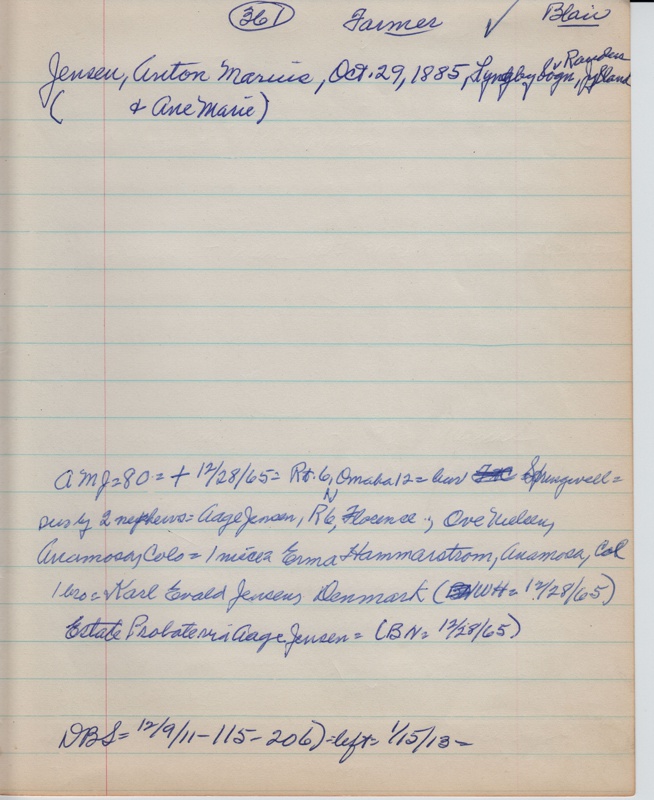 361 Farmer ✓ Blair
Jensen, Anton Marius, Oct. 29, 1885, Lyngby Sogn, Randers, Jylland
( & Ane Marie)
AMJ=80=† 12/28/65= Rt. 6, Omaha 12= bur Springwell=
surs by 2 nephews= Aage Jensen, R6, N Florence; Ove Nielsen,
Anamosa, Colo= 1 niece= Erma Hammarstrom, Anamosa, Col
1 bro= Karl Evald Jensen, Denmark (WH= 12/28/65)
Estate Probate via Aage Jensen= (BN= 12/28/65)
DBS= 12/9/11-115-206)=left= 1/15/13=